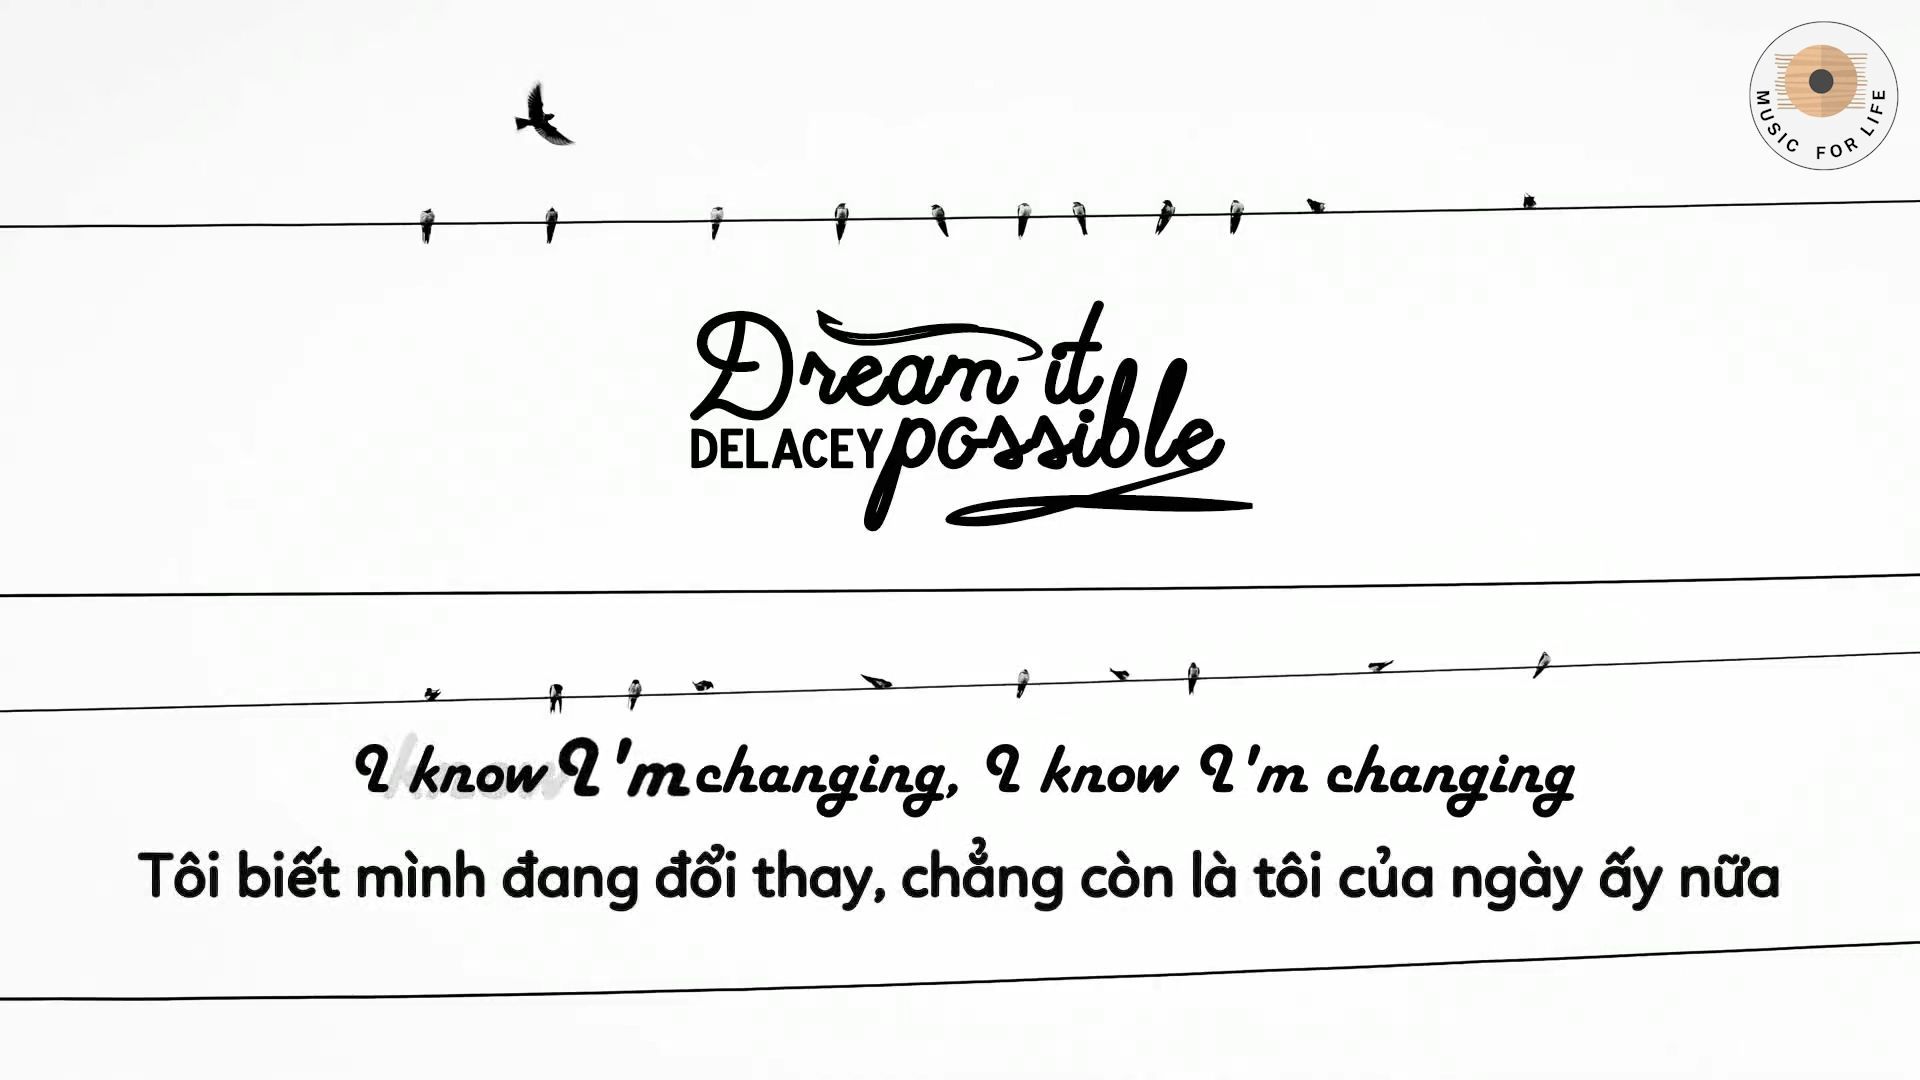 MUSIC FOR LIFE
Dream it
DELACEY possible
I know I'm changing, I know I'm changing
Tôi biết mình đang đổi thay, chẳng còn là tôi của ngày ấy nữa